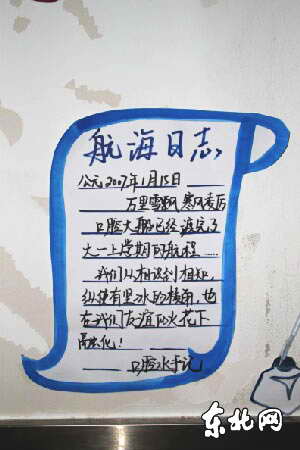 航海日志
公元2007年1月15日
万里雪飘 寒风
口腔大船已经渡完了
大一上学期的航程……
我们从相识到相知,
纵使有 水的 也
在我们友谊的火花下
融化!
口腔水手记
东北网